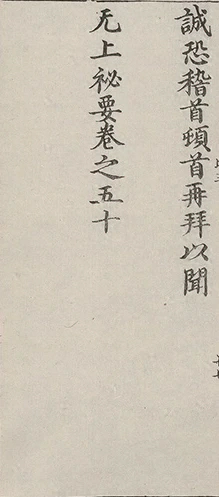 誠恐稽首頓首再拜以聞
无上祕要卷之五十